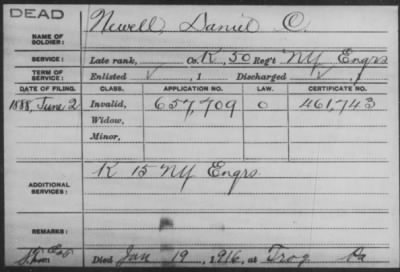 DEAD
NAME OF SOLDIER: Newell, Daniel C.
SERVICE: Late rank, Co. K, 50 Reg't NY Engrs
TERM OF SERVICE: Enlisted , 1 Discharged , 1
DATE OF FILING. CLASS. APPLICATION NO. LAW. CERTIFICATE NO.
1888, June 2 Invalid, 657,709 0 461,743
Widow,
Minor,
ADDITIONAL SERVICES: K 15 NY Engrs
REMARKS:
Died Jan 19, 1916, at Troy Pa